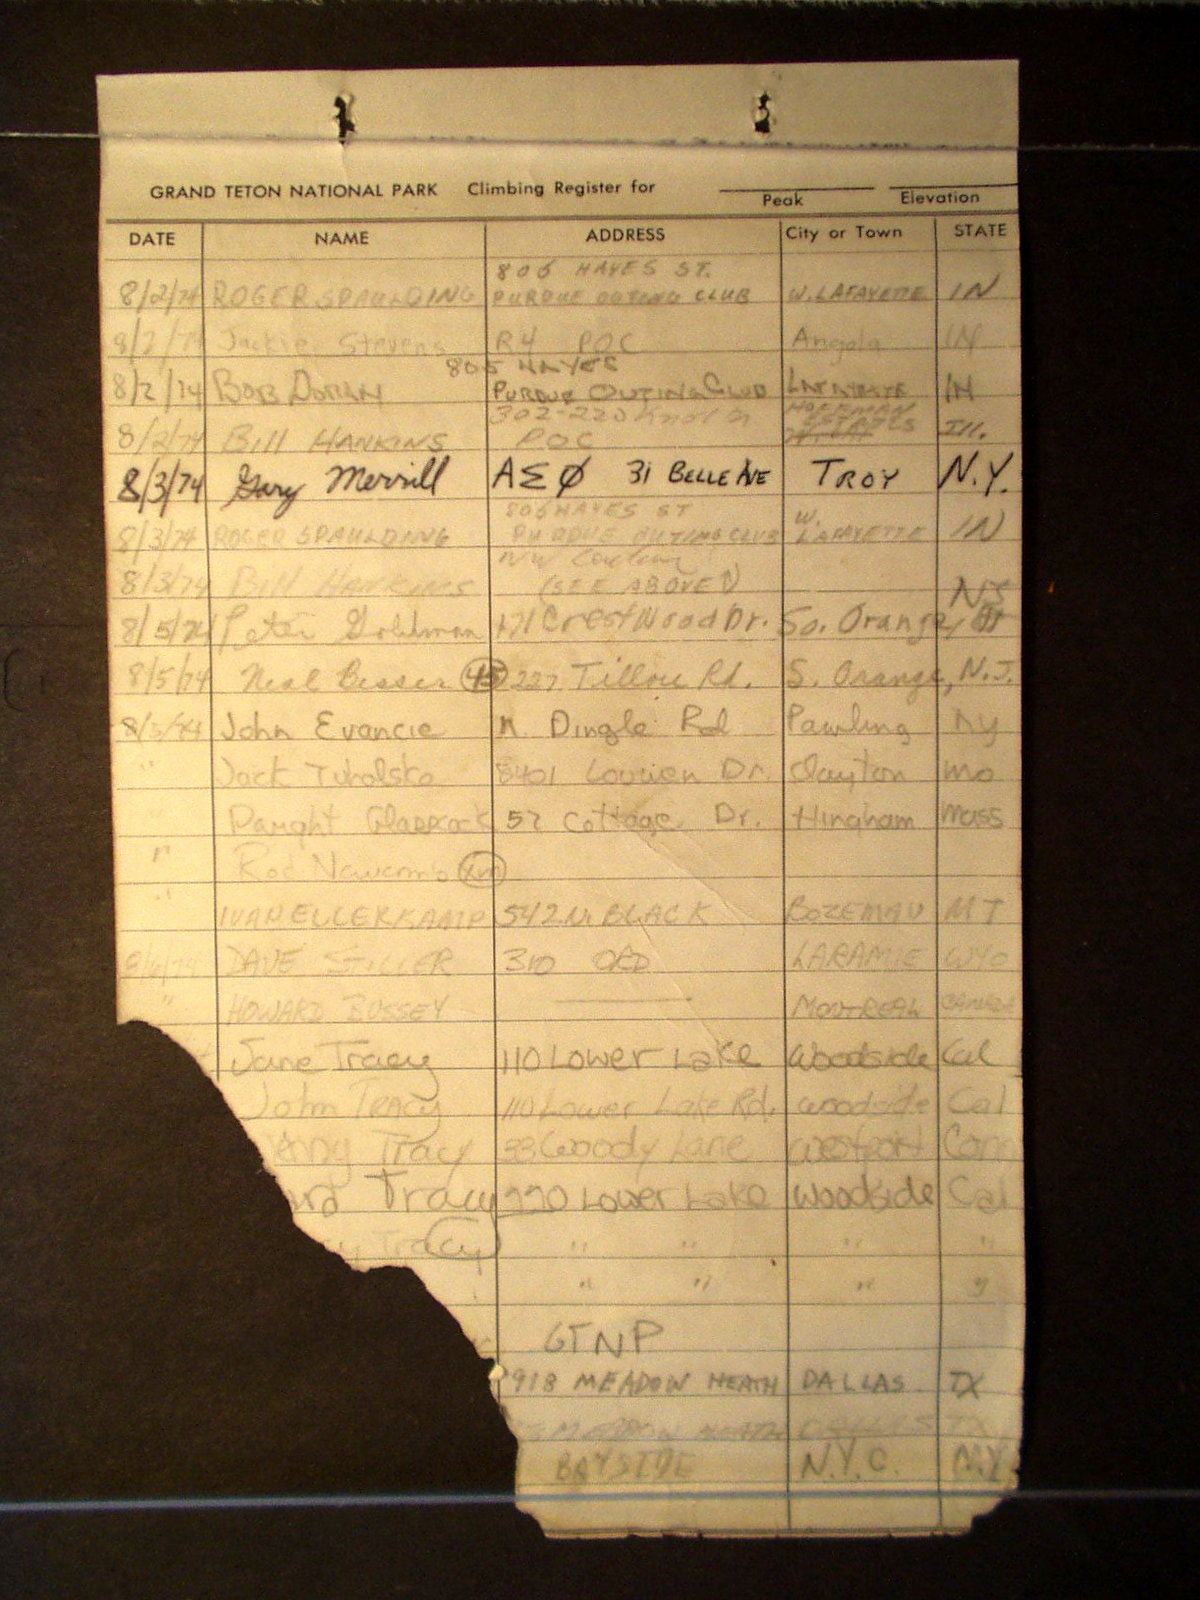 GRAND TETON NATIONAL PARK Climbing Register for
Peak Elevation
DATE NAME ADDRESS City or Town STATE
806 HAYES ST.
8/2/74 ROGER SPAULDING PURDUE OUTING CLUB W. LAFAYETTE IN
8/2/74 Jackie Stevens R4 POC Angola IN
805 HAYES
8/2/74 BOB DORAN PURDUE OUTING CLUB LAFAYETTE IN
302-220 HOFFMAN
8/2/74 Bill HANKINS POC ESTATES Ill.
8/3/74 Gary Merrill ΑΣΦ 31 BELLE AVE TROY N.Y.
806 HAYES ST W.
8/3/74 ROGER SPAULDING PURDUE OUTING CLUB LAFAYETTE IN
8/3/74 Bill HANKINS (SEE ABOVE)
NJ
8/5/74 Peter Goldman 171 CrestWood Dr. So. Orange,
8/5/74 Neal Besser 45 227 Tillou Rd. S. Orange, N.J.
8/5/74 John Evancie N. Dingle Rd Pawling Ny
" Jack Tuholske 8401 Dr. Clayton Mo
" 57 Cottage Dr. Hingham Mass
" Rod Newcomb
" IVAN ELLERKAMP 542 N. BLACK BOZEMAN MT
8/6/74 DAVE STILLER 310 LARAMIE WYO
" HOWARD BUSSEY MONTREAL CANADA
Jane Tracy 110 Lower Lake Woodside Cal
John Tracy 110 Lower Lake Rd. Woodside Cal
enny Tracy 33 Woody Lane Westport Conn
Tracy 770 Lower Lake Woodside Cal
y Tracy " " " "
" " " "
GTNP
918 MEADOW HEATH DALLAS TX
MEADOW HEATH DALLAS TX
BAYSIDE N.Y.C. N.Y.